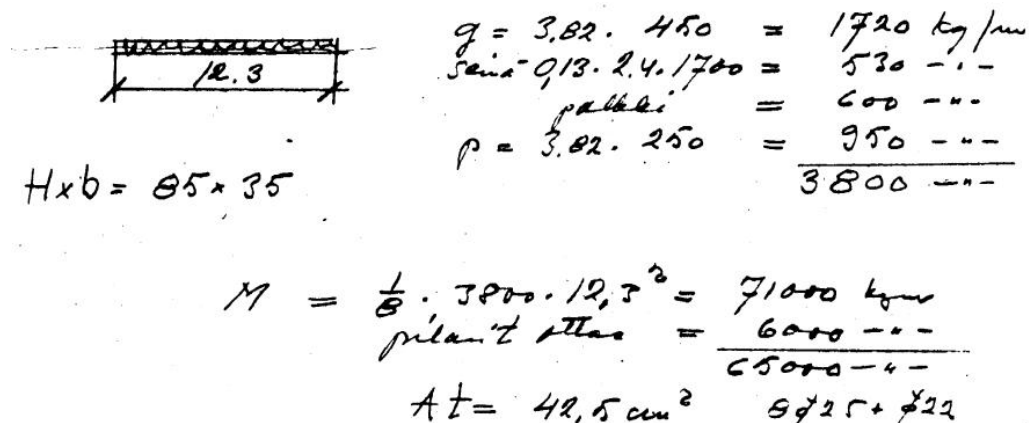 12.3
g = 3,82 · 450 = 1720 kg/m
seinä 0,13 · 2,4 · 1700 = 530 -"-
palkki = 600 -"-
p = 3,82 · 250 = 950 -"-
3800 -"-
H x b = 85 x 35
M = 1/8 · 3800 · 12,3² = 71000 kgm
pilarit ottaa = 6000 -"-
65000 -"-
At = 42,5 cm² 8∅25 + ∅22